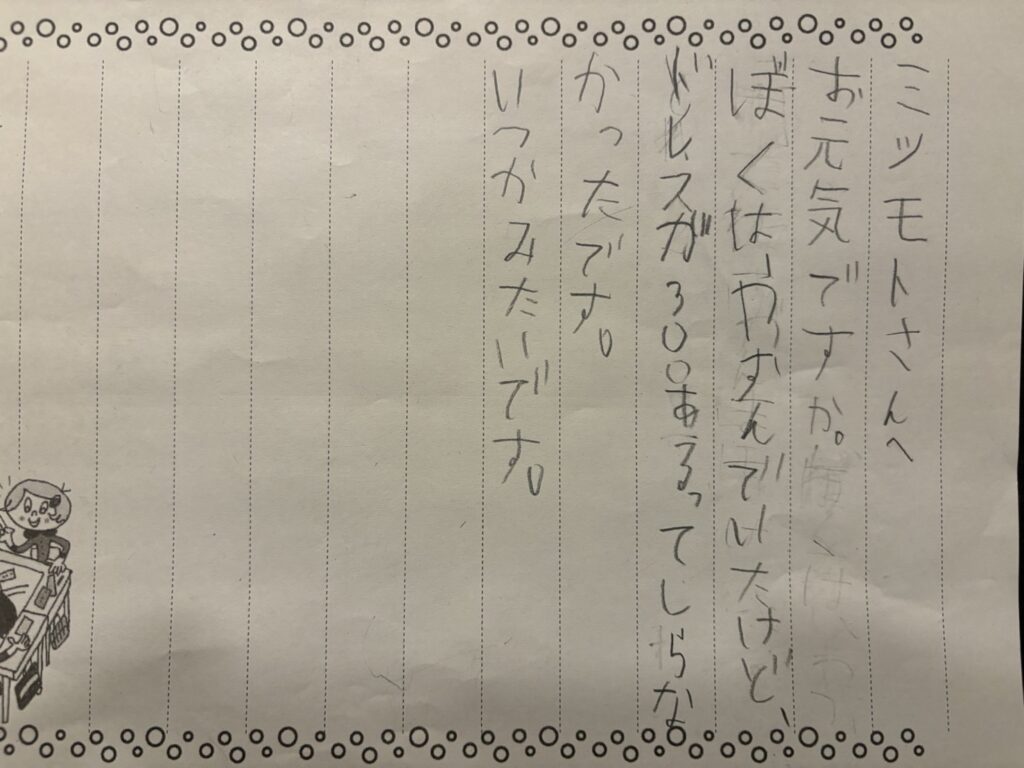 ミツモトさんへ
お元気ですか。
ぼくは、やすんでいたけど、
ドレスが300あるってしらな
かったです。
いつかみたいです。